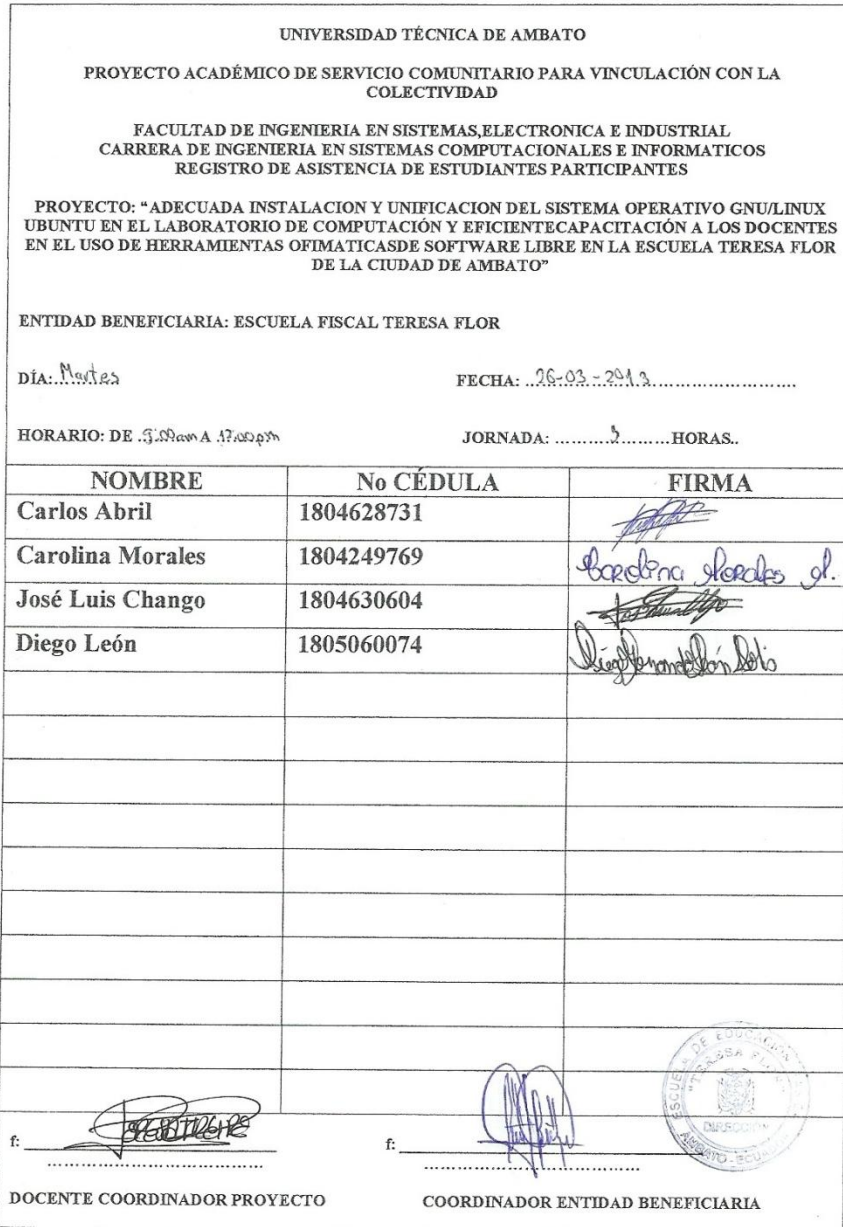 UNIVERSIDAD TÉCNICA DE AMBATO
PROYECTO ACADÉMICO DE SERVICIO COMUNITARIO PARA VINCULACIÓN CON LA
COLECTIVIDAD
FACULTAD DE INGENIERIA EN SISTEMAS,ELECTRONICA E INDUSTRIAL
CARRERA DE INGENIERIA EN SISTEMAS COMPUTACIONALES E INFORMATICOS
REGISTRO DE ASISTENCIA DE ESTUDIANTES PARTICIPANTES
PROYECTO: “ADECUADA INSTALACION Y UNIFICACION DEL SISTEMA OPERATIVO GNU/LINUX
UBUNTU EN EL LABORATORIO DE COMPUTACIÓN Y EFICIENTECAPACITACIÓN A LOS DOCENTES
EN EL USO DE HERRAMIENTAS OFIMATICASDE SOFTWARE LIBRE EN LA ESCUELA TERESA FLOR
DE LA CIUDAD DE AMBATO”
ENTIDAD BENEFICIARIA: ESCUELA FISCAL TERESA FLOR
DÍA: Martes FECHA: 26-03-2013
HORARIO: DE A 17:00pm JORNADA: HORAS..
NOMBRE No CÉDULA FIRMA
Carlos Abril 1804628731
Carolina Morales 1804249769 Carolina Morales
José Luis Chango 1804630604
Diego León 1805060074 Diego Fernando León
ESCUELA DE EDUCACIÓN
"TERESA FLOR"
DIRECCIÓN
AMBATO - ECUADOR
f: f:
DOCENTE COORDINADOR PROYECTO COORDINADOR ENTIDAD BENEFICIARIA